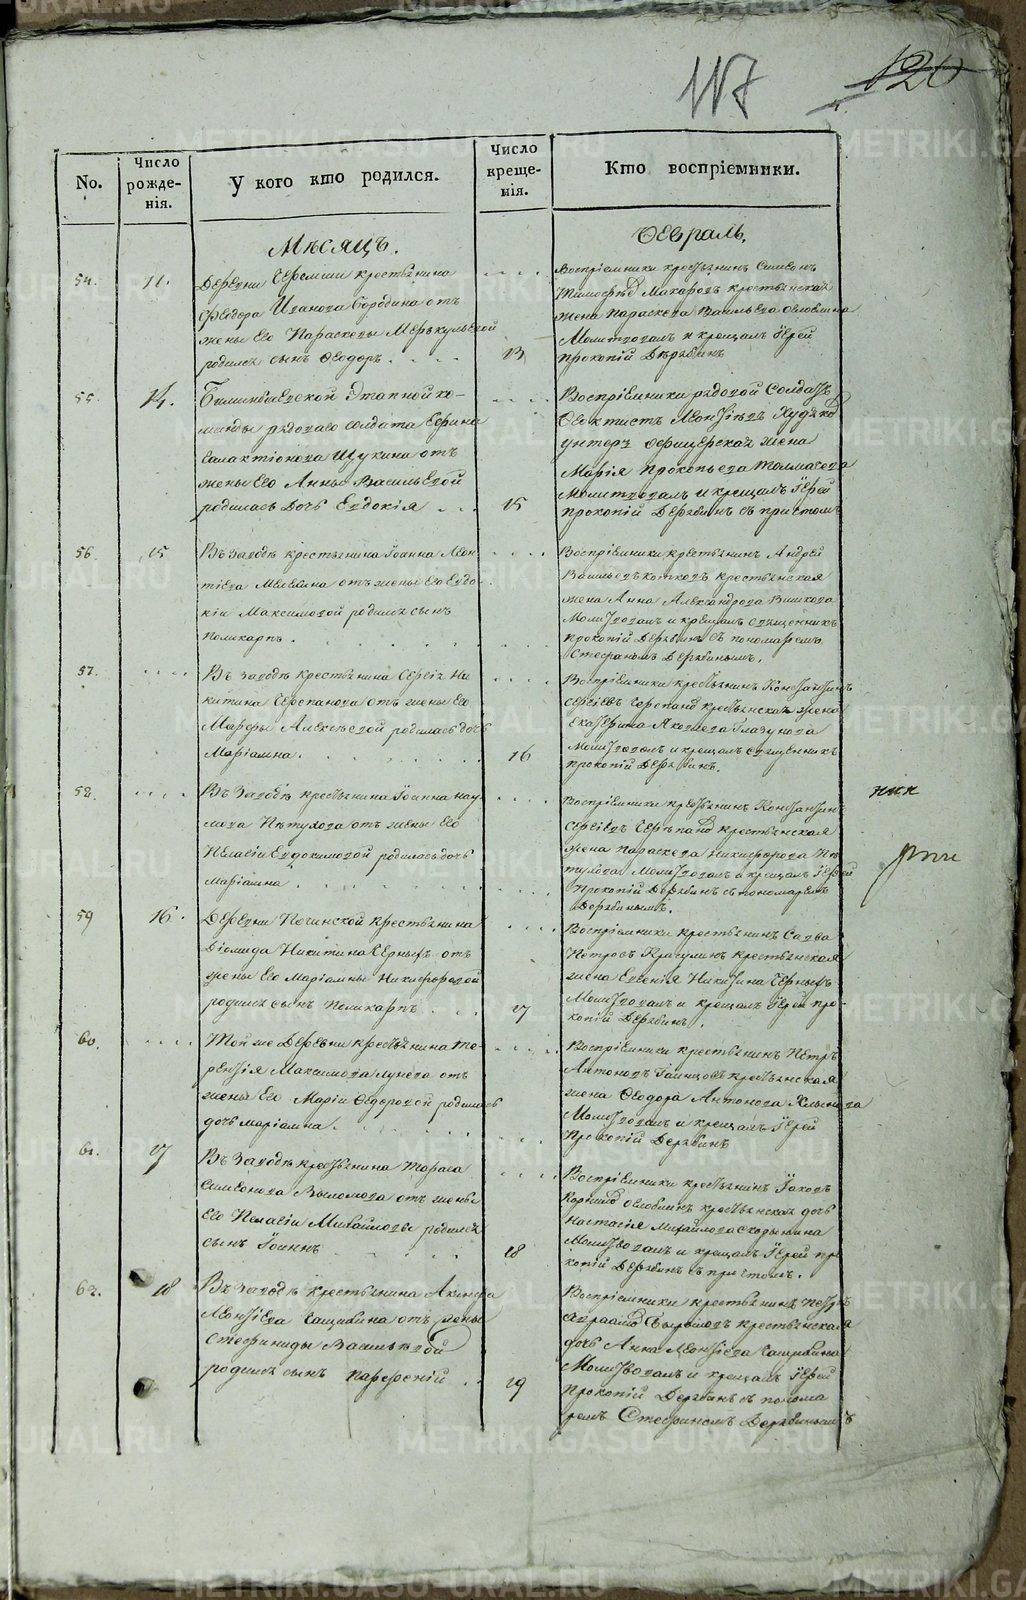 117
120
No.
Число рожде-нія.
У кого кто родился.
Число креще-нія.
Кто воспріемники.
Мѣсяцъ.
Февраль.
54.
11.
Деревни Черемши крестьянина
Феодора Иванова от
жены его Параскевы Меркульевой
родился сынъ Феодоръ
13
Воспріемники крестьянинъ Симеонъ
Тимофѣевъ Макаровъ крестьянская
жена Параскева Васильева
Молитвовалъ и крещалъ Іерей
Прокопій Дерябинъ
55.
14.
Билимбаевской Этапной ко-
манды рядоваго солдата
Галактіонова Щукина отъ
жены его Анны Васильевой
родилась дочь Евдокія
15
Воспріемники рядовой солдатъ
Феоктистъ Леонтіевъ
унтеръ офицерская жена
Марія Прокопьева Толмачева
Молитвовалъ и крещалъ Іерей
Прокопій Дерябинъ съ причтомъ
56.
15
Въ Заводѣ крестьянина Іоанна Леон-
тіева отъ жены его Евдо-
кіи Максимовой родился сынъ
Поликарпъ.
Воспріемники крестьянинъ Андрей
Васильевъ крестьянская
жена Анна Александрова
Молитвовалъ и крещалъ священникъ
Прокопій Дерябинъ съ пономаремъ
Стефаномъ Дерябинымъ.
57.
Въ Заводѣ крестьянина Сергія Ни-
китина Черепанова отъ жены его
Марфы Алексѣевой родилась дочь
Маріамна.
16
Воспріемники крестьянинъ Константинъ
Сергіевъ Черепановъ крестьянская жена
Екатерина Глазунова
Молитвовалъ и крещалъ священникъ
Прокопій Дерябинъ.
58.
Въ Заводѣ крестьянина Іоанна Нау-
мова Пѣтухова отъ жены его
Пелагіи Евдокимовой родилась дочь
Маріамна
Воспріемники крестьянинъ Константинъ
Сергіевъ Черепановъ крестьянская
жена Параскева Никифорова Пѣ-
тухова Молитвовалъ и крещалъ Іерей
Прокопій Дерябинъ съ пономаремъ
Дерябинымъ.
59
16.
Деревни Починской крестьянина
Діомида Никитина Черныхъ отъ
жены его Маріамны Никифоровой
родился сынъ Поликарпъ
17
Воспріемники крестьянинъ Савва
Петровъ крестьянская
жена Евгенія Никитина Черныхъ
Молитвовалъ и крещалъ Іерей Про-
копій Дерябинъ.
60.
Той же Деревни крестьянина Те-
рентія Максимова отъ
жены его Маріи Феодоровой родилась
дочь Маріамна.
Воспріемники крестьянинъ Петръ
Антоновъ крестьянская
жена Феодора Антонова
Молитвовалъ и крещалъ Іерей
Прокопій Дерябинъ
61.
17
Въ Заводѣ крестьянина Тараса
Симеонова отъ жены
его Пелагіи Михайловы родился
сынъ Іоаннъ
18
Воспріемники крестьянинъ Іаковъ
крестьянская дочь
Настасія Михайлова
Молитвовалъ и крещалъ Іерей Про
копій Дерябинъ съ причтомъ.
62.
18
Въ Заводѣ крестьянина
Леонтіева отъ жены
Стефаниды Васильевой
родился сынъ Парфеній
19
Воспріемники крестьянинъ Петръ
крестьянская
дочь Анна Леонтіева
Молитвовалъ и крещалъ Іерей
Прокопій Дерябинъ съ понома
ремъ Стефаномъ Дерябинымъ
METRIKI.GASO-URAL.RU